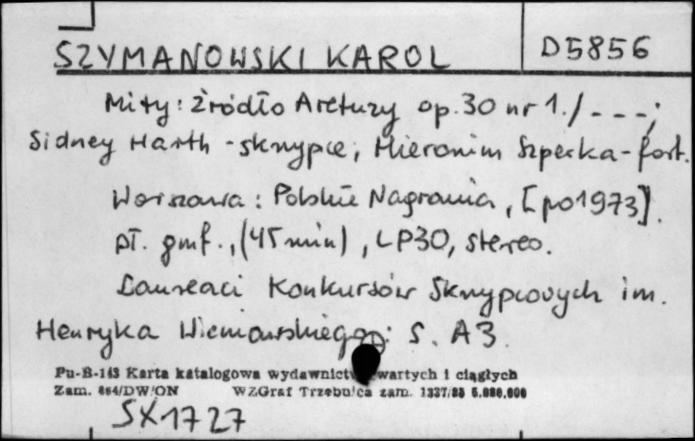 SZYMANOWSKI KAROL
D5856
Mity: Źródło Aretuzy op. 30 nr 1. / - - - ;
Sidney Harth - skrzypce, Hieronim Szperka - fort.
Warszawa : Polskie Nagrania, [po 1973].
pł. gmf., (45 min), LP30, stereo.
Laureaci Konkursów Skrzypcowych im.
Henryka Wieniawskiego; S. A3.
Pu-B-143 Karta katalogowa wydawnictw zwartych i ciągłych
Zam. 854/DW/ON WZGraf Trzebnica zam. 1337/88 5.000.000
SX1727